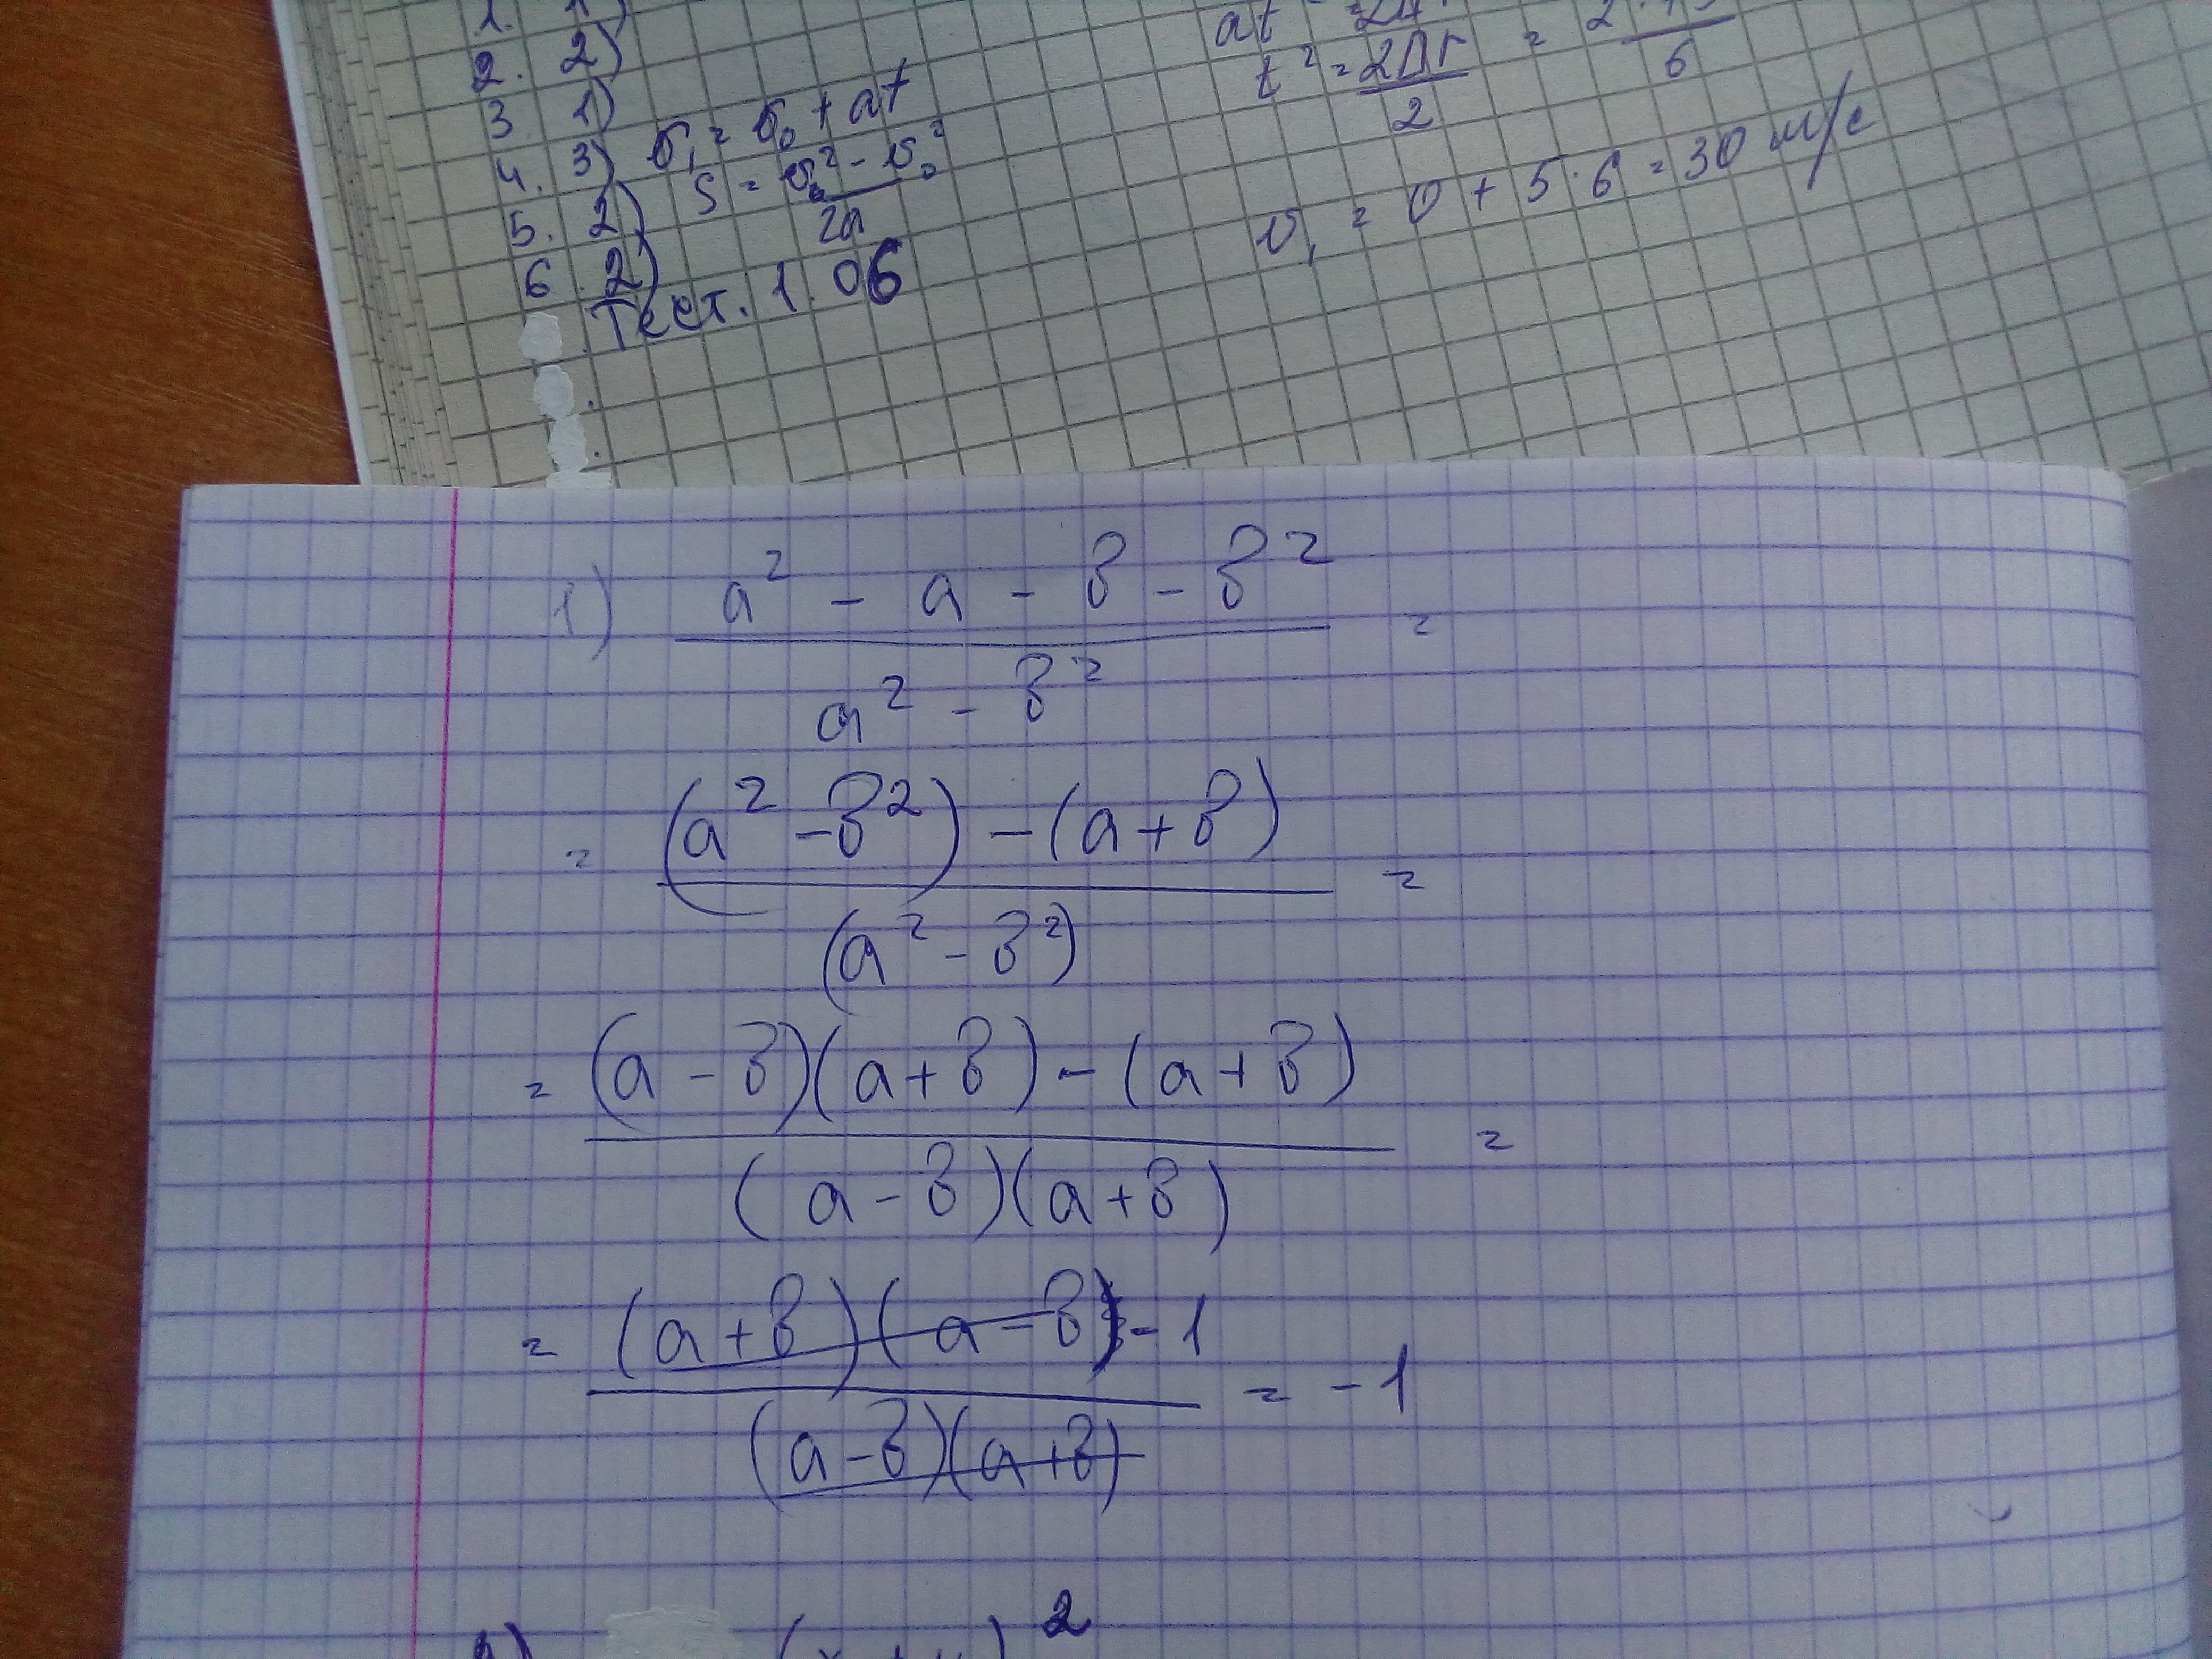 1. 1)
2. 2)
3 1)
4. 3) v₁ = v₀ + at
5. 2) S = v₁² - v₀² / 2a
6. 2)
Тест. 1.06
t² = 2Δr / 2 = / 6
v₁ = 0 + 5·6 = 30 м/с
1) a² - a - b - b² / a² - b² =
= (a² - b²) - (a + b) / (a² - b²) =
= (a - b)(a + b) - (a + b) / (a - b)(a + b) =
= (a + b)(a - b) - 1 / (a - b)(a + b) = - 1
2